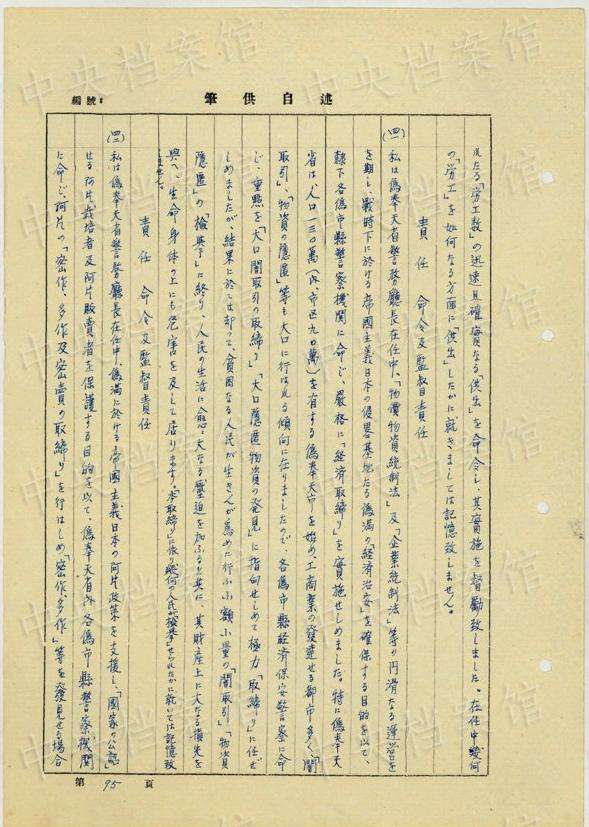 中央档案馆
編號：
筆供自述
れたる「労工数」の迅速且確実なる「供出」を命令し、其実施を督励致しました。在任中幾何
の「労工」を如何なる方面に「供出」したかに就きましては記憶致しません。
責任 命令及監督責任
(四)私は偽奉天省警務廳長在任中、「物價物資統制法」及「企業統制法」等の円滑なる運営を
を期し、戦時下に於ける帝國主義日本の侵畧基地たる偽満の「経済治安」を確保する目的を以て、
隷下各偽市縣警察機関に命じ、嚴格に「経済取締り」を実施せしめました。特に偽奉天
省は、人口一三〇萬(内、市区九〇萬)を有する偽奉天市を始め、工商業の發達せる都市多く、「闇
取引」、「物資の隠匿」等も大口に行はれる傾向に在りましたので、各偽市縣経済保安警察に命
じ、重點を「大口闇取引の取締り」「大口隠匿物資の発見」に指向せしめて極力「取締り」に任ぜ
しめましたが、結果に於ては却って、貧困なる人民が生きんが為めに行ふ小額小量の「闇取引」「物資
隠匿」の「検挙」に終り、人民の生活に愈々大なる壓迫を加ふると共に、其財産上に大なる損失を
與へ、生命身体の上にも危害を及して居ります。本「取締り」に依り幾何の人民が「検挙」せられたかに就いては記憶致
しません。
責任 命令及監督責任
(四)私は偽奉天省警務廳長在任中、偽満に於ける帝國主義日本の阿片政策を支援し、「國家の公認」
せる阿片栽培者及阿片販賣者を保護する目的を以て、偽奉天省内各偽市縣警察機関
に命じ、阿片の「密作、多作及密賣の取締り」を行はしめ「密作、多作」等を發見せる場合
第 95 頁